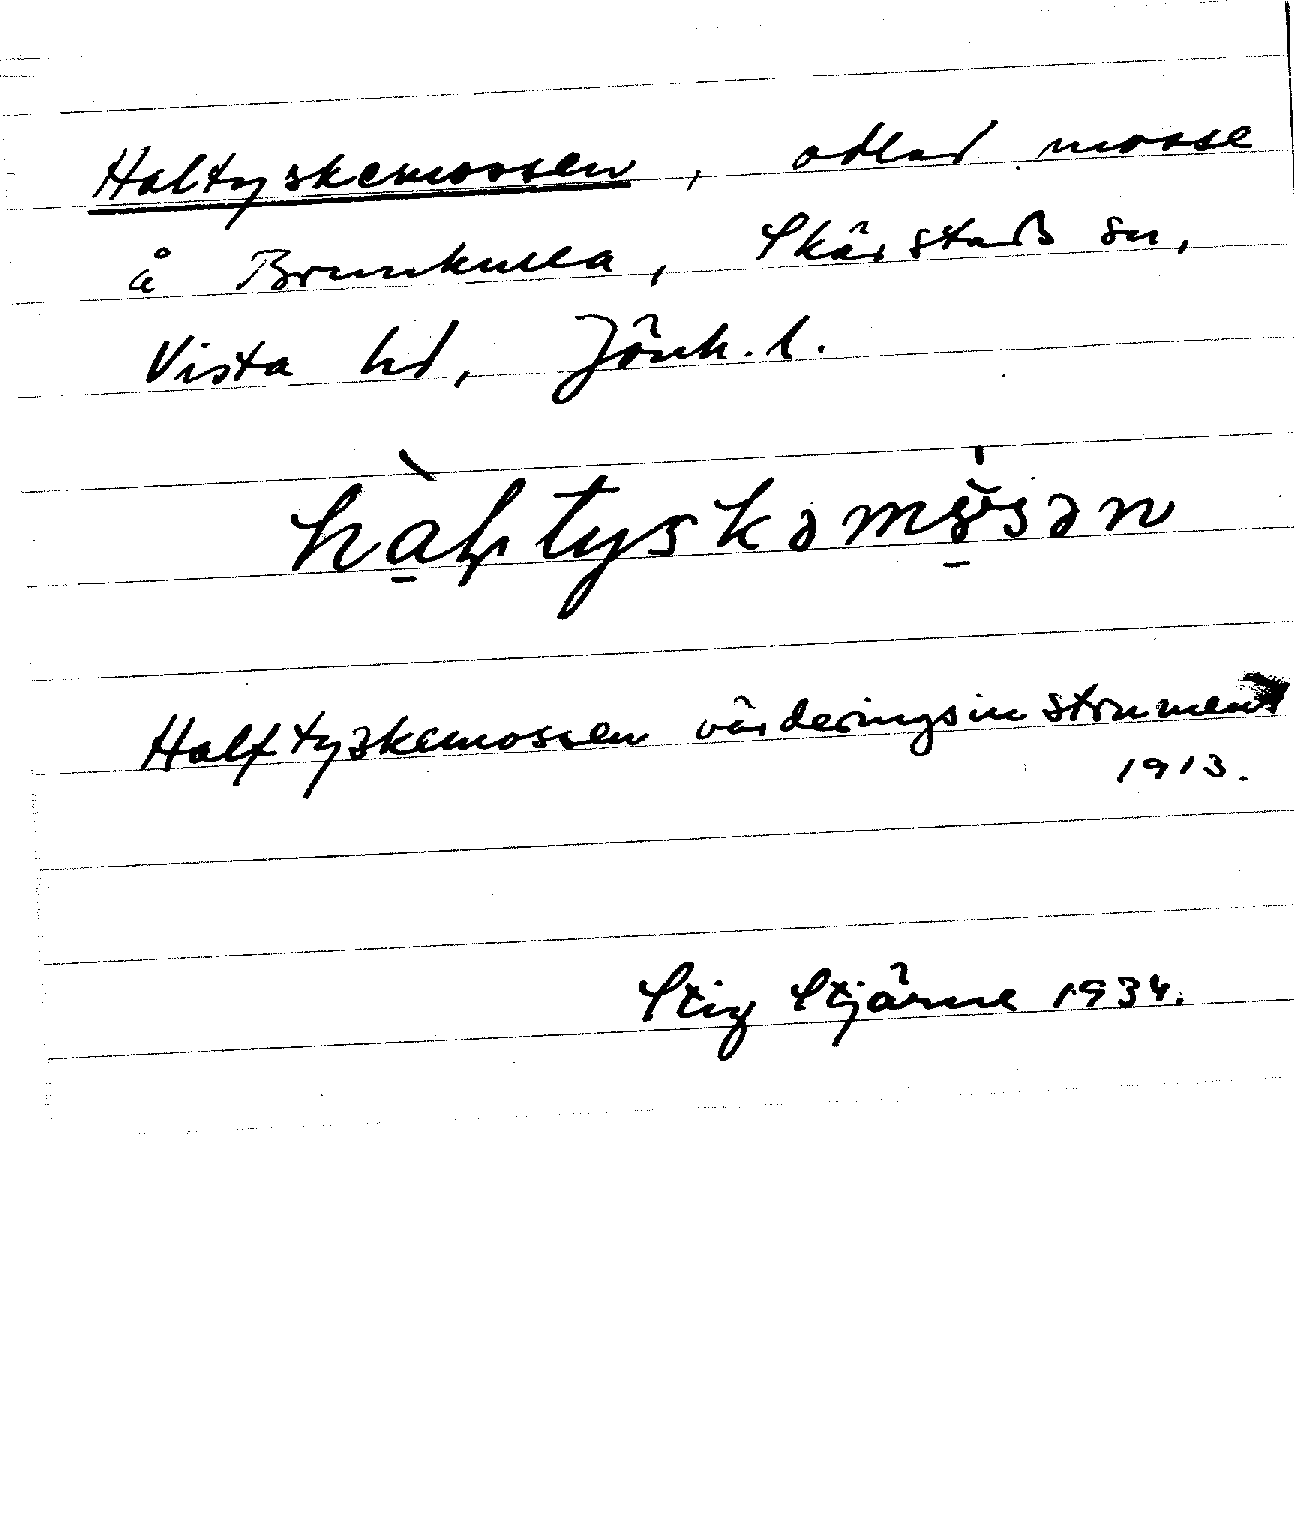 Haltyskemossen, odlad mosse
å Brunkulla, Skärstads sn,
Vista hd, Jönk. l.
Halftyskemossen värderingsinstrument
1913.
Stig Stjärne 1934.